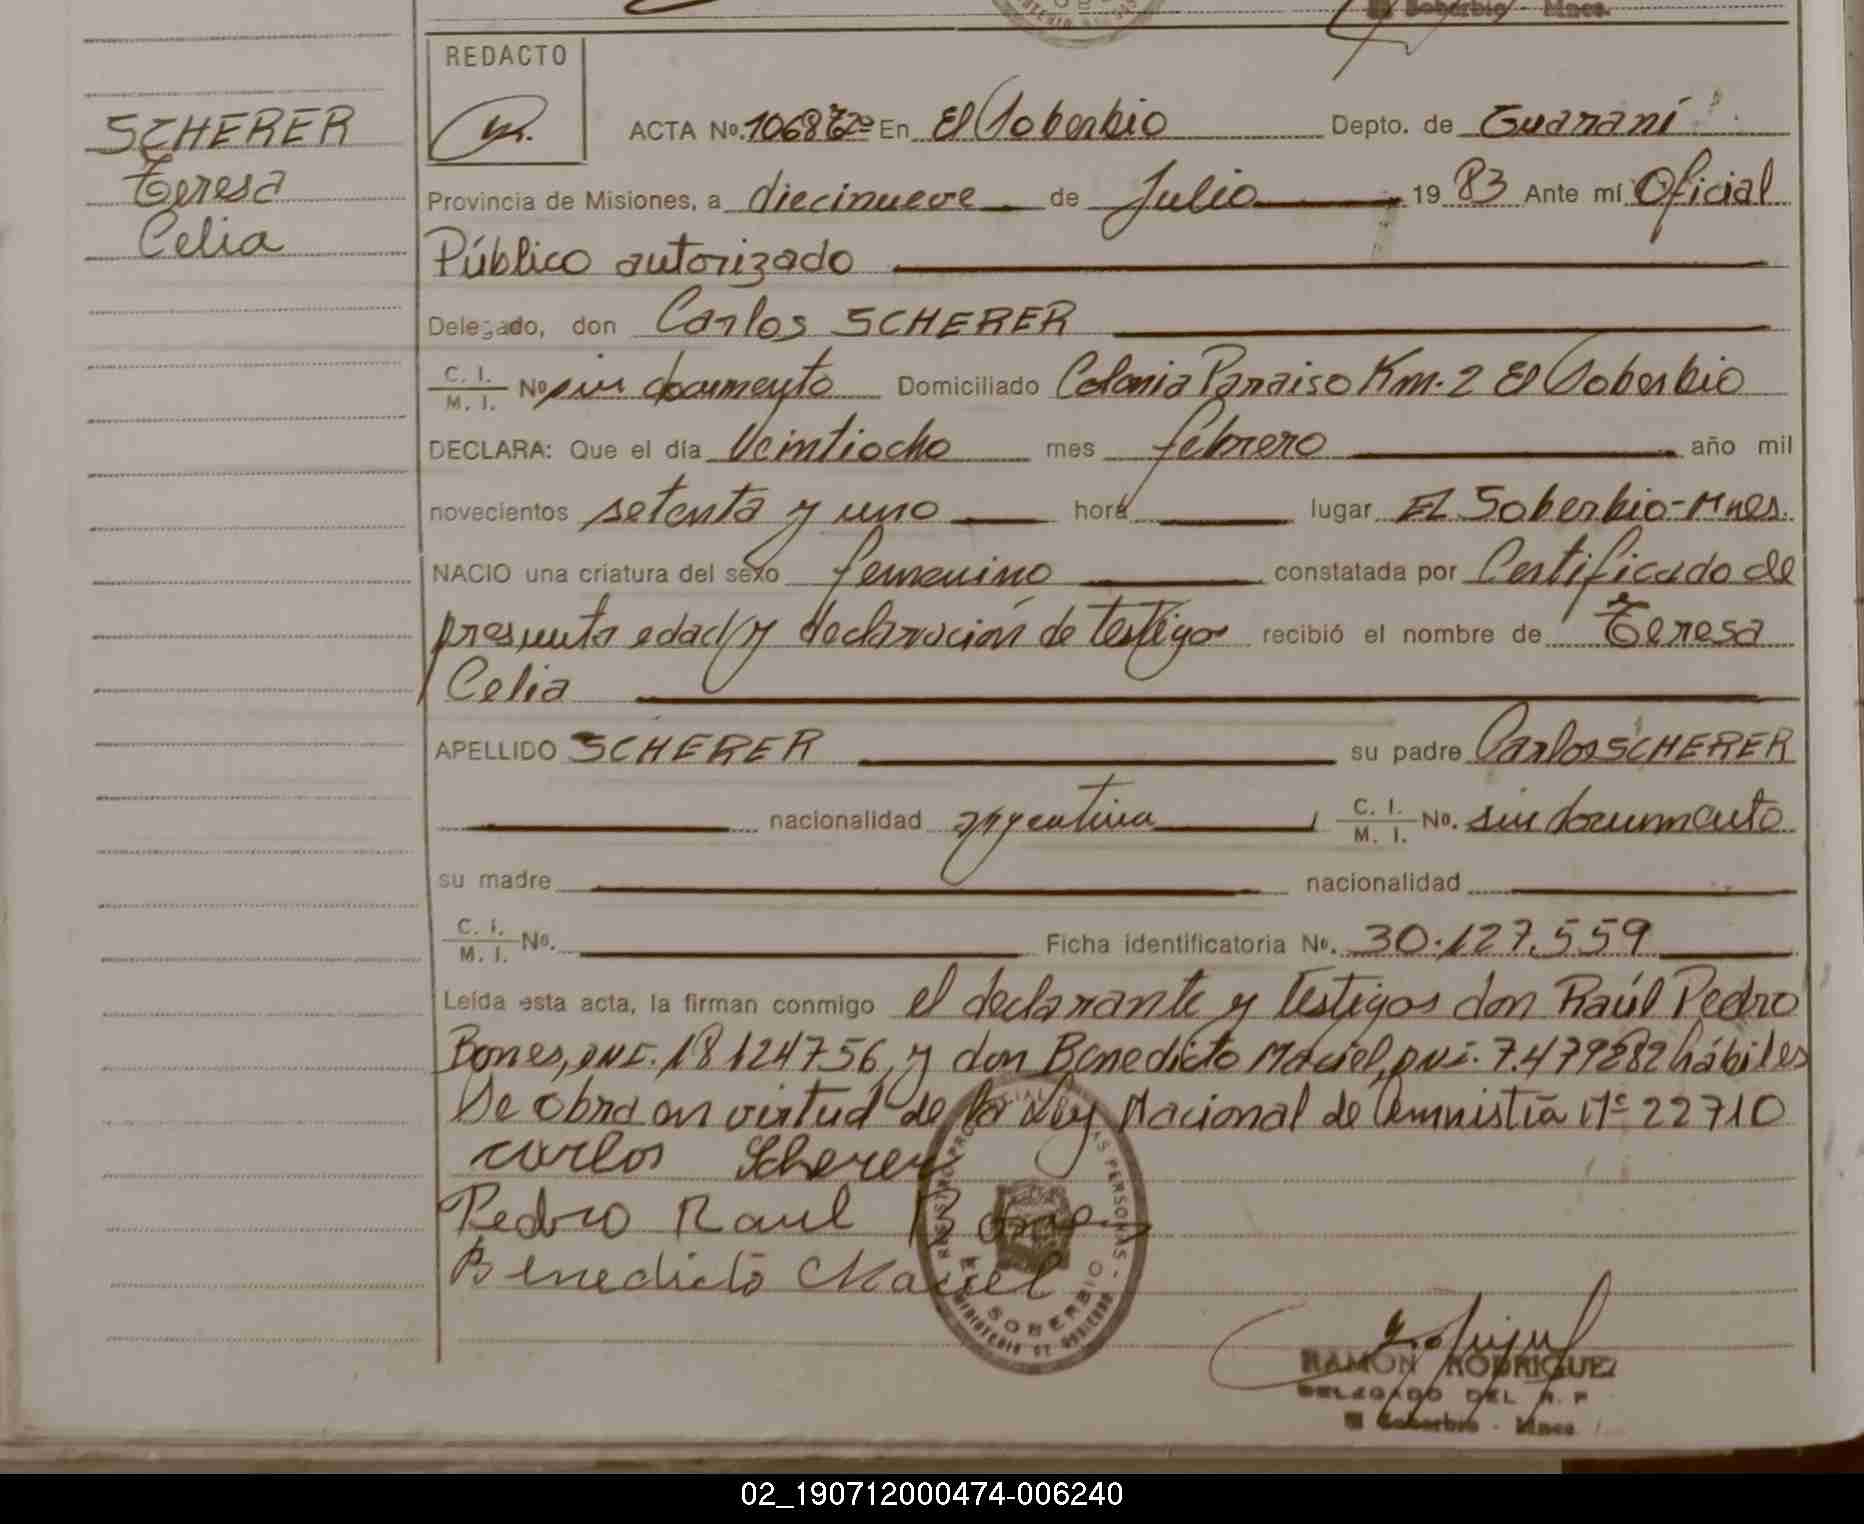 Soberbio - Mnes.
REDACTO
SCHERER
Teresa
Celia
ACTA No. En El Soberbio Depto. de Guaraní
Provincia de Misiones, a diecinueve de Julio 19 83 Ante mí Oficial
Público autorizado
Delegado, don Carlos SCHERER
C. I. / M. I. No sin documento Domiciliado Colonia Paraiso Km. 2 El Soberbio
DECLARA: Que el día Veintiocho mes febrero año mil
novecientos setenta y uno hora lugar El Soberbio-Mnes.
NACIO una criatura del sexo femenino constatada por Certificado de
presunta edad y declaración de testigos recibió el nombre de Teresa
Celia
APELLIDO SCHERER su padre Carlos SCHERER
nacionalidad argentina C. I. / M. I. No. sin documento
su madre nacionalidad
C. I. / M. I. No. Ficha identificatoria No. 30.127.559
Leída esta acta, la firman conmigo el declarante y testigos don Raúl Pedro
Bones, DNI. 18124756, y don Benedicto Maciel, DNI. 7.479282 hábiles
Se obra en virtud de la Ley Nacional de Amnistía Nº 22710
carlos Scherer
Pedro Raul Bones
Benedicto Maciel
DE LAS PERSONAS - EL SOBERBIO
MINISTERIO DE GOBIERNO
RAMON RODRIGUEZ
DELEGADO DEL R. P.
El Soberbio - Mnes.
02_190712000474-006240